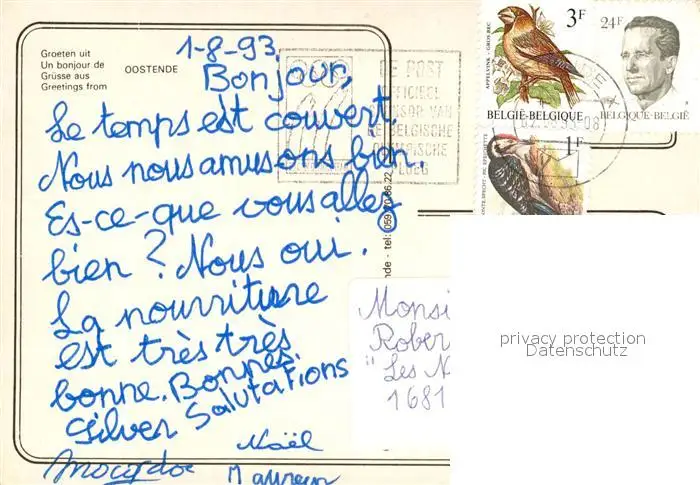 Groeten uit
Un bonjour de
Grüsse aus
Greetings from
OOSTENDE
1-8-93
Bonjour,
Le temps est couvert.
Nous nous amusons bien.
Es-ce-que vous allez
bien ? Nous oui.
La nourriture
est très très
bonne. Bonnes
Salutations
Silver
Noël
DE POST
OFFICIEEL
SPONSOR VAN
DE BELGISCHE
OLYMPISCHE
PLOEG
3F
APPELVINK - GROS-BEC
BELGIË-BELGIQUE
24F
BELGIQUE-BELGIË
1F
nde - tel: 059
Monsi
Rober
"Les N
1681
privacy protection
Datenschutz